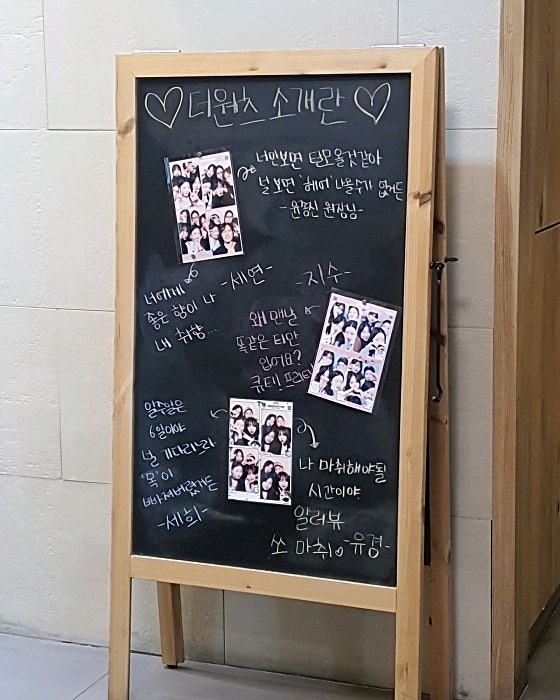 ♡ 더원츠 소개란 ♡
너만보면 탈모올것같아
널 보면 '헤어'나올수가 없거든
-윤종진 원장님-
-세연-
너에게
좋은 향이 나
내 취향...
-지수-
왜 맨날
똑같은 티만
입어요?
큐티, 프리티
일주일은
6일이야
널 기다리느라
'목'이
빠져버렸거든
-세희-
나 마취해야될
시간이야
알러뷰
쏘 마취♡
-유경-